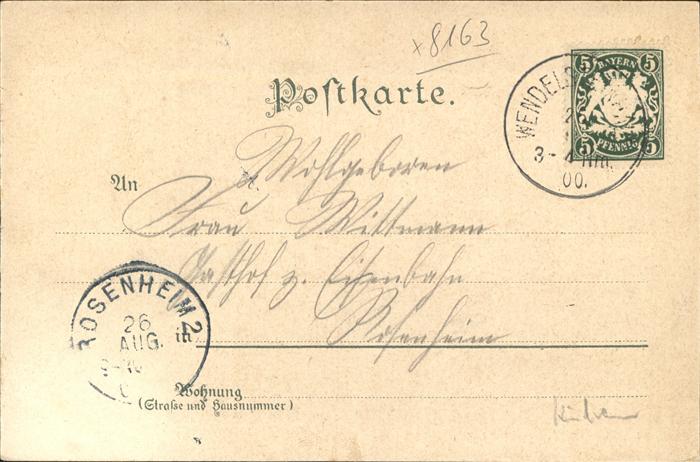 x 8163
5 BAYERN 5
5 PFENNIG 5
WENDELS
2
3-4 Nm.
00.
Postkarte.
Wohlgeboren
An Frau Wittmann
Gasthof z. Eisenbahn
in Rosenheim
ROSENHEIM 2
26
AUG.
9-10
Wohnung
(Straße und Hausnummer)